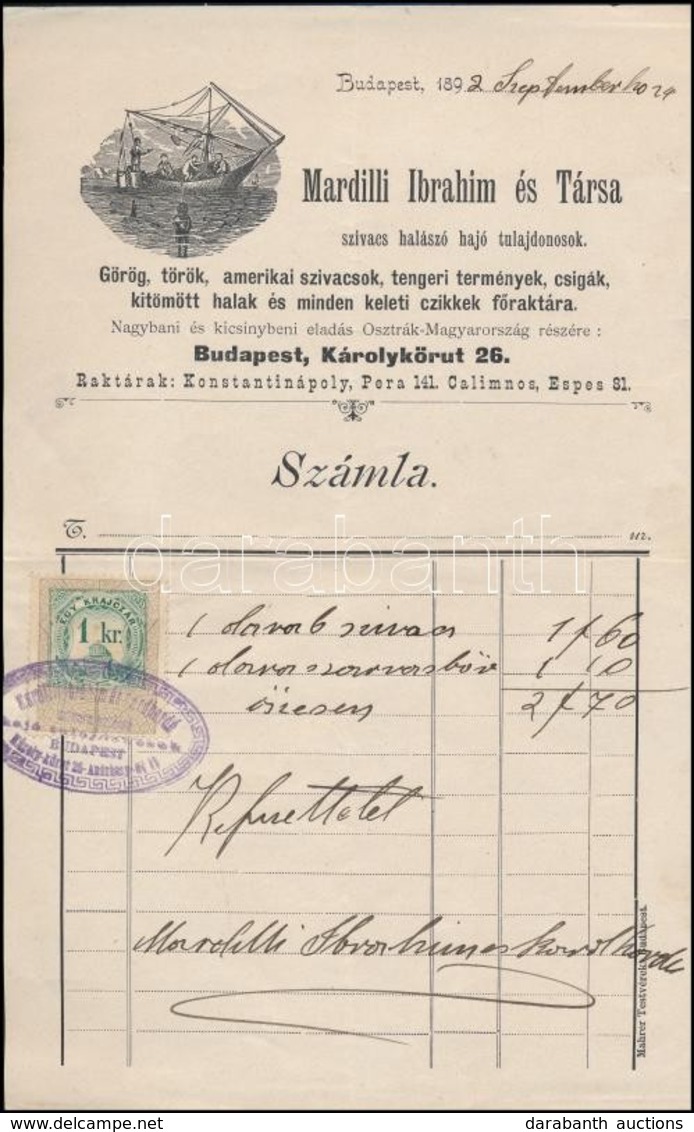 Budapest, 1892 September hó 24
Mardilli Ibrahim és Társa
szivacs halászó hajó tulajdonosok.
Görög, török, amerikai szivacsok, tengeri termények, csigák,
kitömött halak és minden keleti czikkek főraktára.
Nagybani és kicsinybeni eladás Osztrák-Magyarország részére :
Budapest, Károlykörut 26.
Raktárak: Konstantinápoly, Pera 141. Calimnos, Espes 81.
Számla.
T. urz.
EGY KRAJCZÁR
1 kr.
1 darab szivacs 1 f 60
1 darab szarvasbőr 1 10
összesen 2 f 70
BUDAPEST
Károly-körut 26
Mardilli Ibrahim
Mahrer Testvérek, Budapest.
darabanth
www.darabanth.com
darabanth auctions